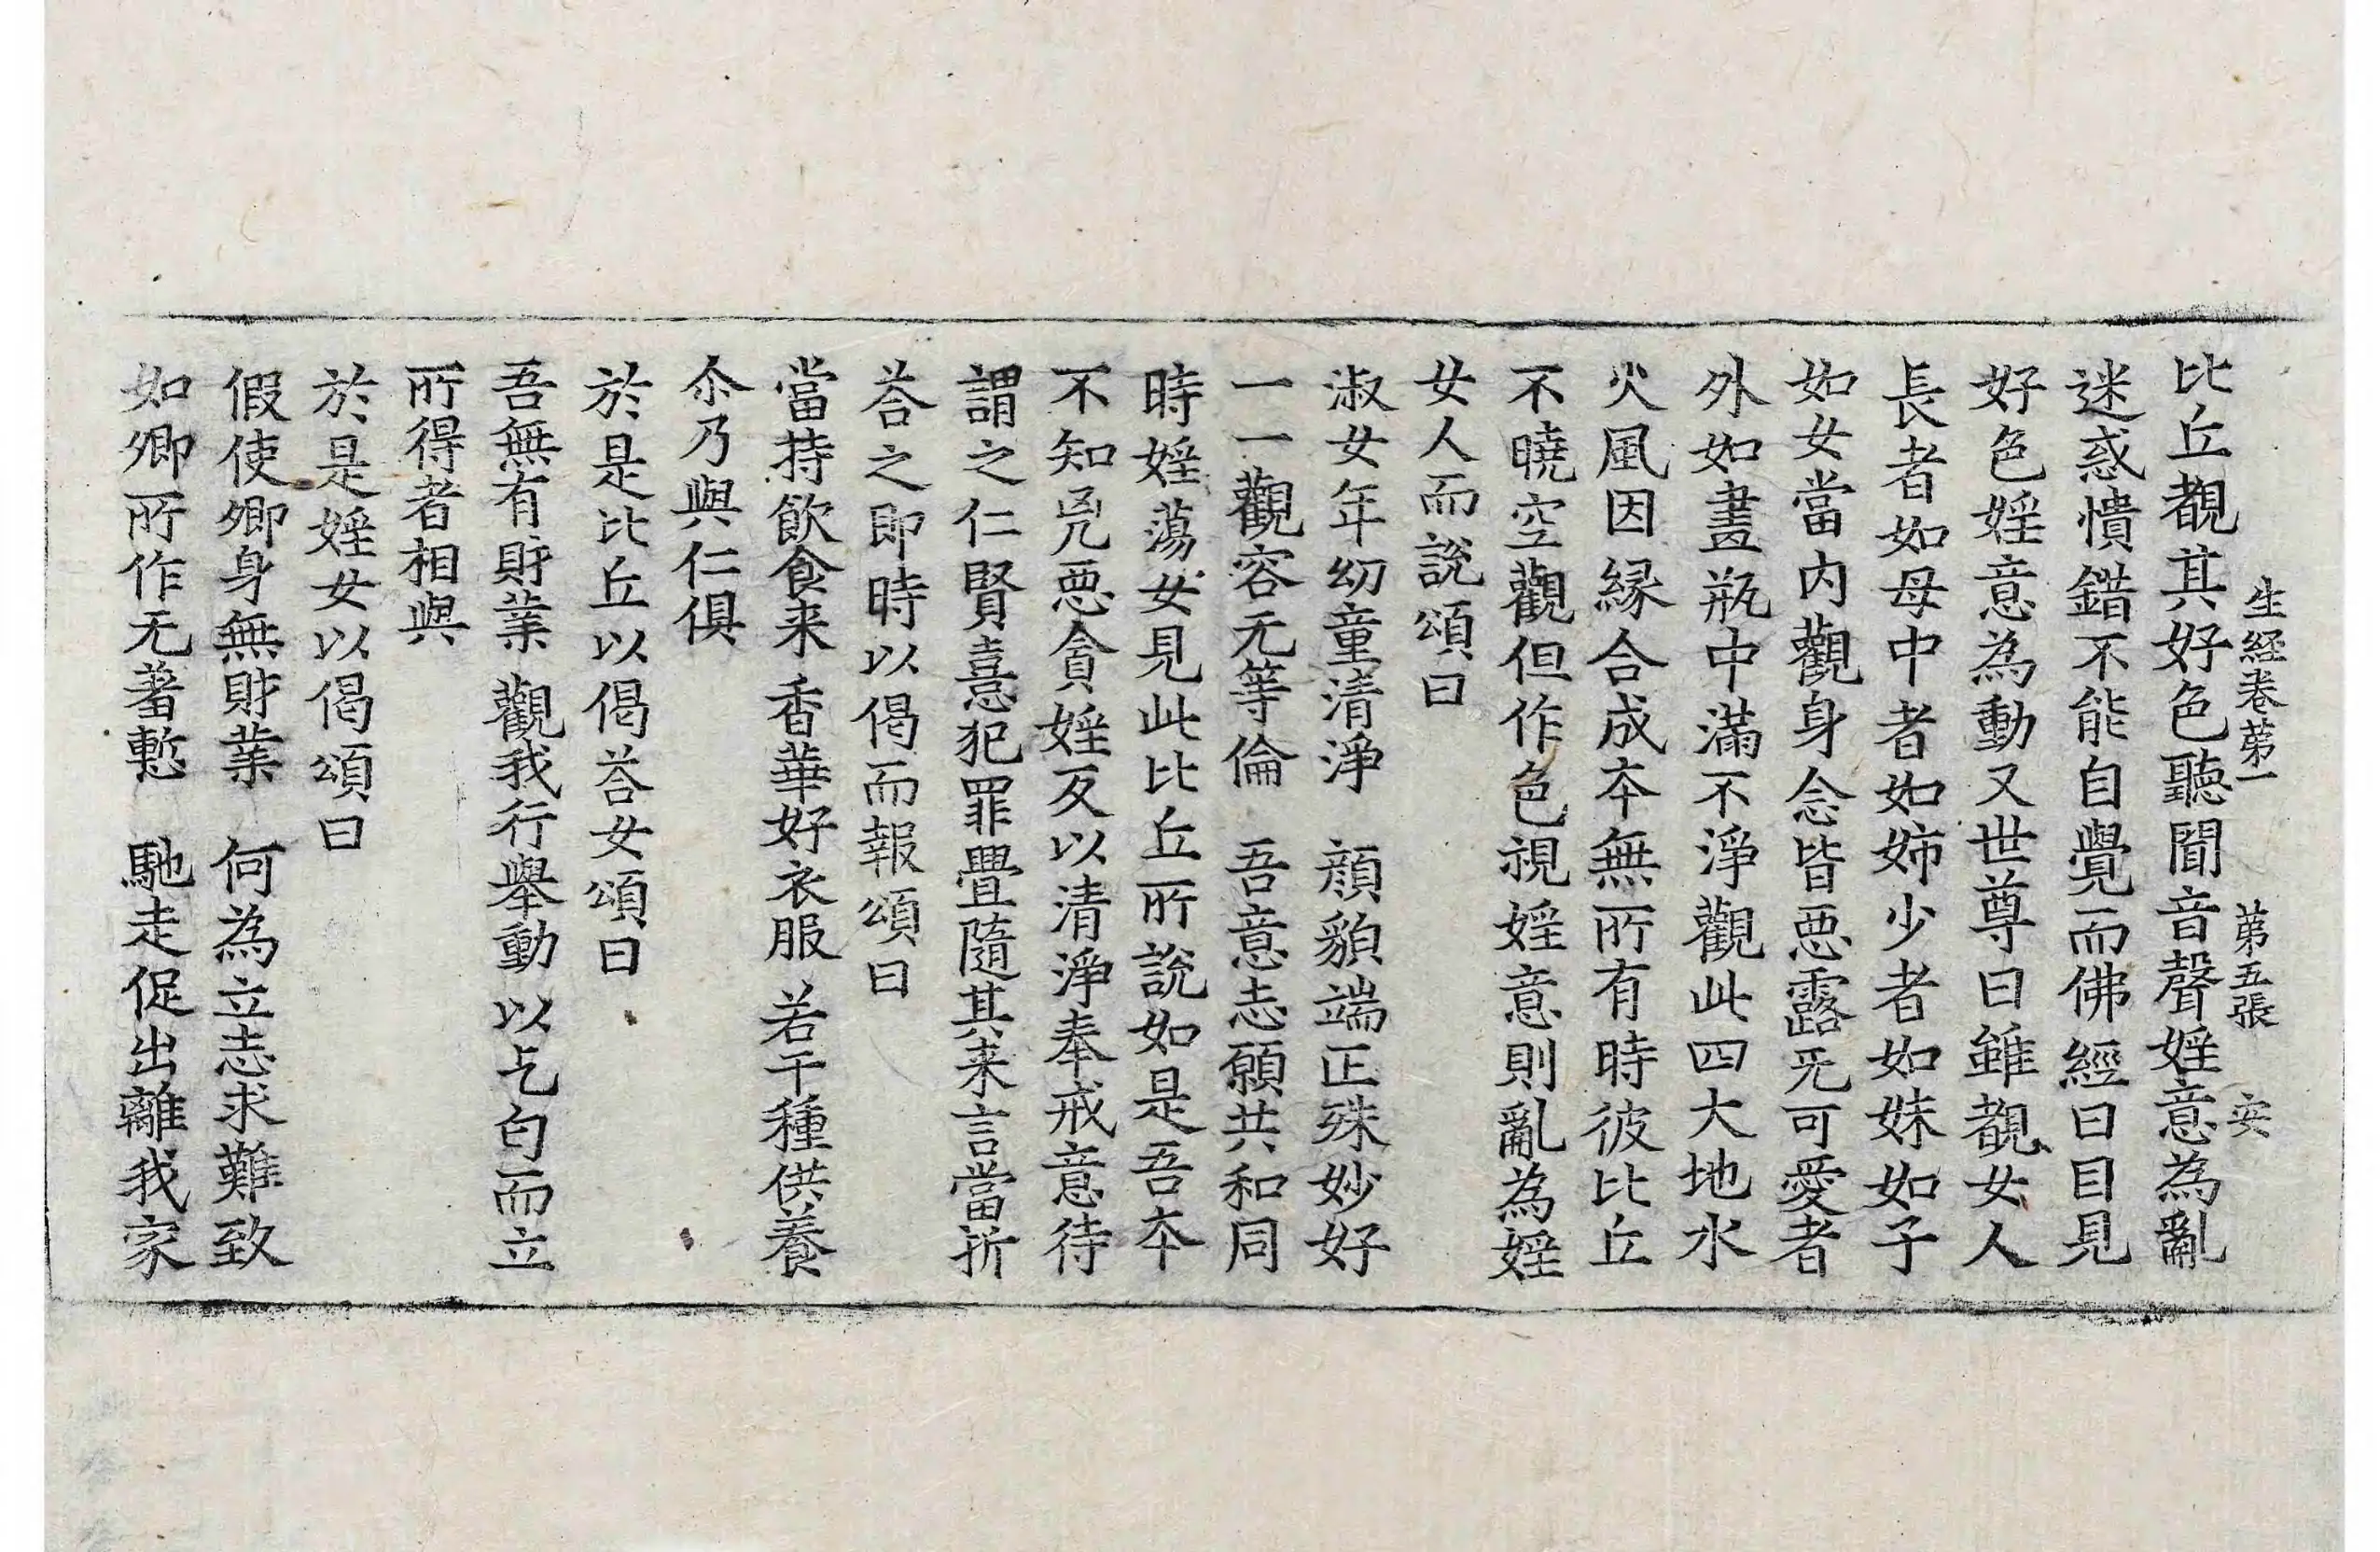 生経卷苐一　苐五張　安
比丘覩其好色聽聞音聲婬意為亂
迷惑憒錯不能自覺而佛經曰目見
好色婬意為動又世尊曰雖覩女人
長者如母中者如姊少者如妹如子
如女當內觀身念皆惡露无可愛者
外如畫瓶中滿不淨觀此四大地水
火風因緣合成本無所有時彼比丘
不曉空觀但作色視婬意則亂為婬
女人而說頌曰
淑女年幼童清淨　顔貌端正殊妙好
一一觀容无等倫　吾意志願共和同
時婬蕩女見此比丘所說如是吾本
不知兇惡貪婬反以清淨奉戒意待
謂之仁賢憙犯罪舋隨其来言當折
荅之即時以偈而報頌曰
當持飲食来　香華好衣服　若干種供養
尒乃與仁俱
於是比丘以偈荅女頌曰
吾無有財業　觀我行舉動　以乞匃而立
所得者相與
於是婬女以偈頌曰
假使卿身無財業　何為立志求難致
如卿所作无著慙　馳走促出離我家